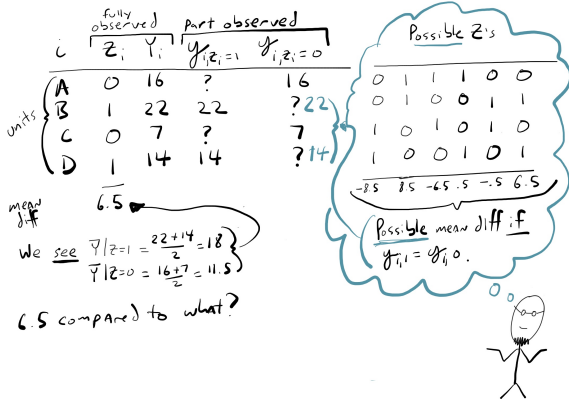 fully observed
part observed
i Zi Yi yi,zi=1 yi,zi=0
units
A 0 16 ? 16
B 1 22 22 ? 22
C 0 7 ? 7
D 1 14 14 ? 14
mean diff 6.5
We see Y|Z=1 = 22+14/2 = 18
Y|Z=0 = 16+7/2 = 11.5
6.5 compared to what?
Possible Z's
0 1 1 1 0 0
0 1 0 0 1 1
1 0 1 0 1 0
1 0 0 1 0 1
-8.5 8.5 -6.5 .5 -.5 6.5
Possible mean diff if
yi,1 = yi,0.